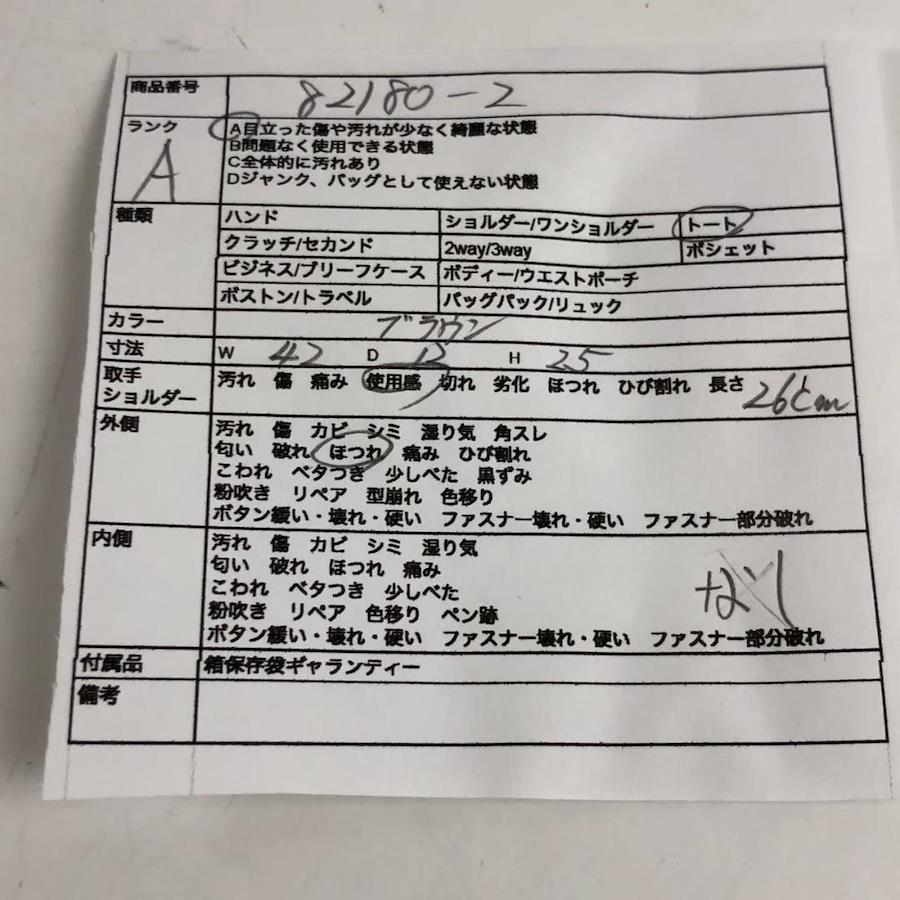 商品番号 82180-2
ランク A A目立った傷や汚れが少なく綺麗な状態
B問題なく使用できる状態
C全体的に汚れあり
Dジャンク、バッグとして使えない状態
種類 ハンド ショルダー/ワンショルダー トート
クラッチ/セカンド 2way/3way ポシェット
ビジネス/ブリーフケース ボディー/ウエストポーチ
ボストン/トラベル バッグパック/リュック
カラー ブラウン
寸法 W 42 D 12 H 25
取手 汚れ 傷 痛み 使用感 切れ 劣化 ほつれ ひび割れ 長さ 26cm
ショルダー
外側 汚れ 傷 カビ シミ 湿り気 角スレ
匂い 破れ ほつれ 痛み ひび割れ
こわれ ベタつき 少しべた 黒ずみ
粉吹き リペア 型崩れ 色移り
ボタン緩い・壊れ・硬い ファスナー壊れ・硬い ファスナー部分破れ
内側 汚れ 傷 カビ シミ 湿り気
匂い 破れ ほつれ 痛み
こわれ ベタつき 少しべた なし
粉吹き リペア 色移り ペン跡
ボタン緩い・壊れ・硬い ファスナー壊れ・硬い ファスナー部分破れ
付属品 箱保存袋ギャランティー
備考